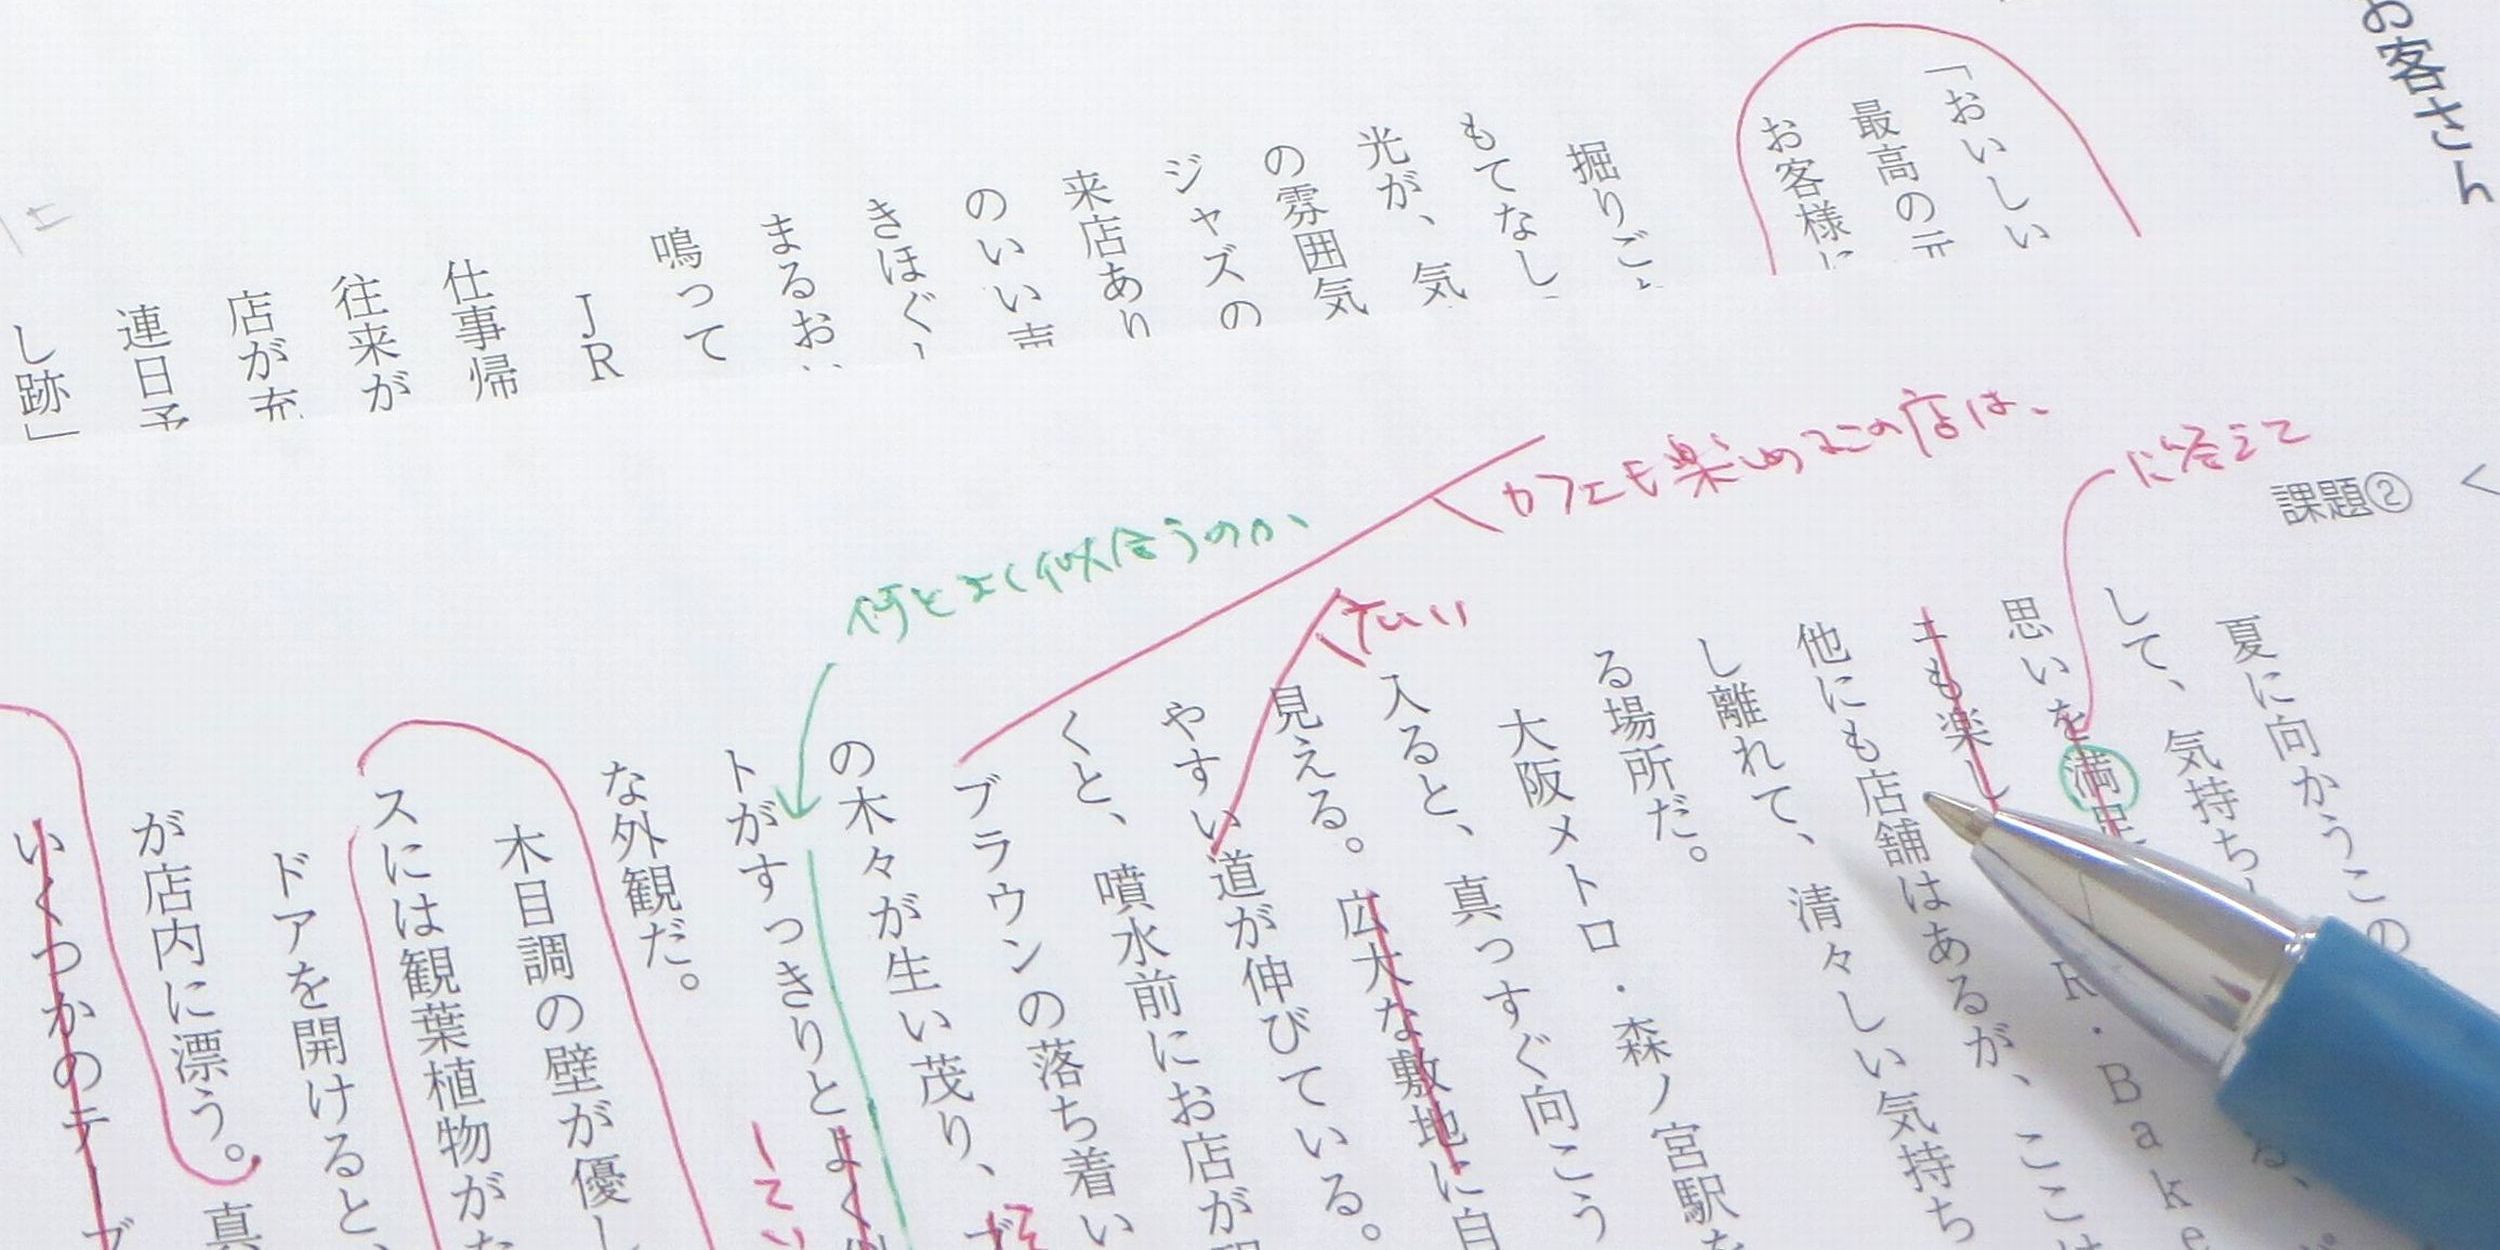 お客さん
「おいしい
最高の元
お客様に
掘りご
もてなし
光が、気
の雰囲気
ジャズの
来店あり
のいい声
きほぐ
まるお
鳴って
JR
仕事帰
往来が
店が充
連日予
し跡」
課題②
夏に向かうこの
して、気持ち
に答えて
思いを満足
R・Bake
も楽し
ここは
他にも店舗はあるが、
し離れて、清々しい気持ち
る場所だ。
大阪メトロ・森ノ宮駅を
入ると、真っすぐ向こう
見える。広大な敷地に自
やすい道が伸びている。
くと、噴水前にお店が
カフェも楽しめるこの店は、
ブラウンの落ち着い
の木々が生い茂り、
何とよく似合うのか、
トがすっきりとよく
てい
な外観だ。
木目調の壁が優し
スには観葉植物が
ドアを開けると、
が店内に漂う。真
いくつかのテーブ